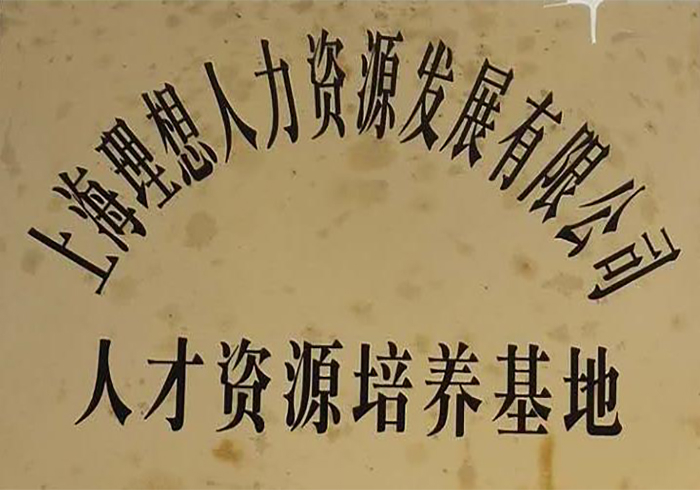 上海理想人力资源发展有限公司
人才资源培养基地